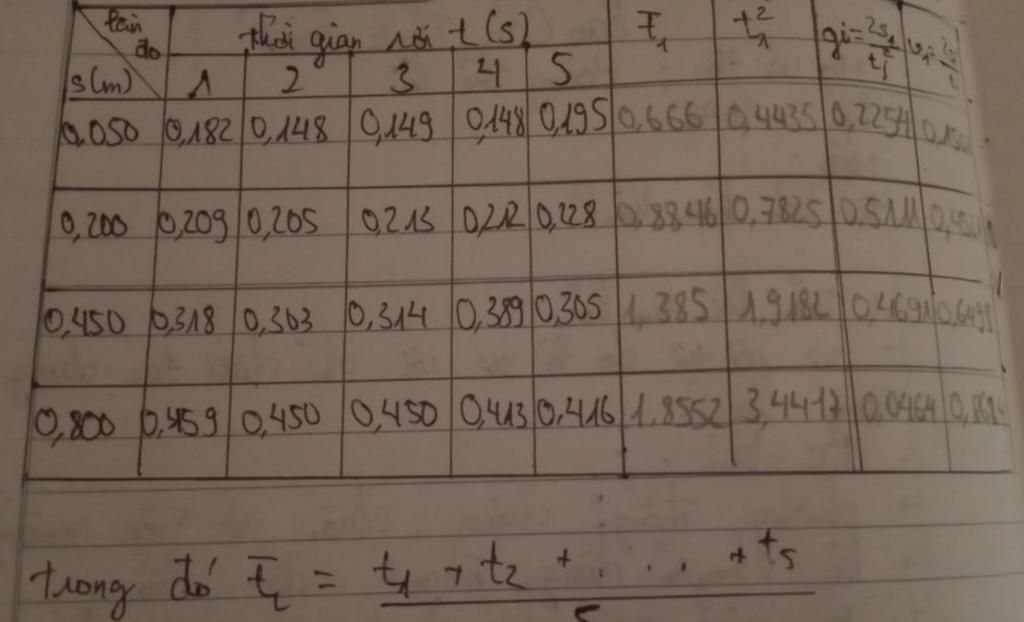 lần đo thời gian rơi t(s) t̄₁ t₁² gi=2s₁/t₁²
s(m) 1 2 3 4 5
0,050 0,182 0,148 0,149 0,148 0,195 0,666 0,4435 0,2254
0,200 0,209 0,205 0,213 0,212 0,228 0,8846 0,7825 0,5111
0,450 0,318 0,303 0,314 0,389 0,305 1,385 1,9182
0,800 0,459 0,450 0,450 0,413 0,416 1,8552 3,4417 0,0464
trong đó t̄ᵢ = t₁ + t₂ + . . . + t₅
5